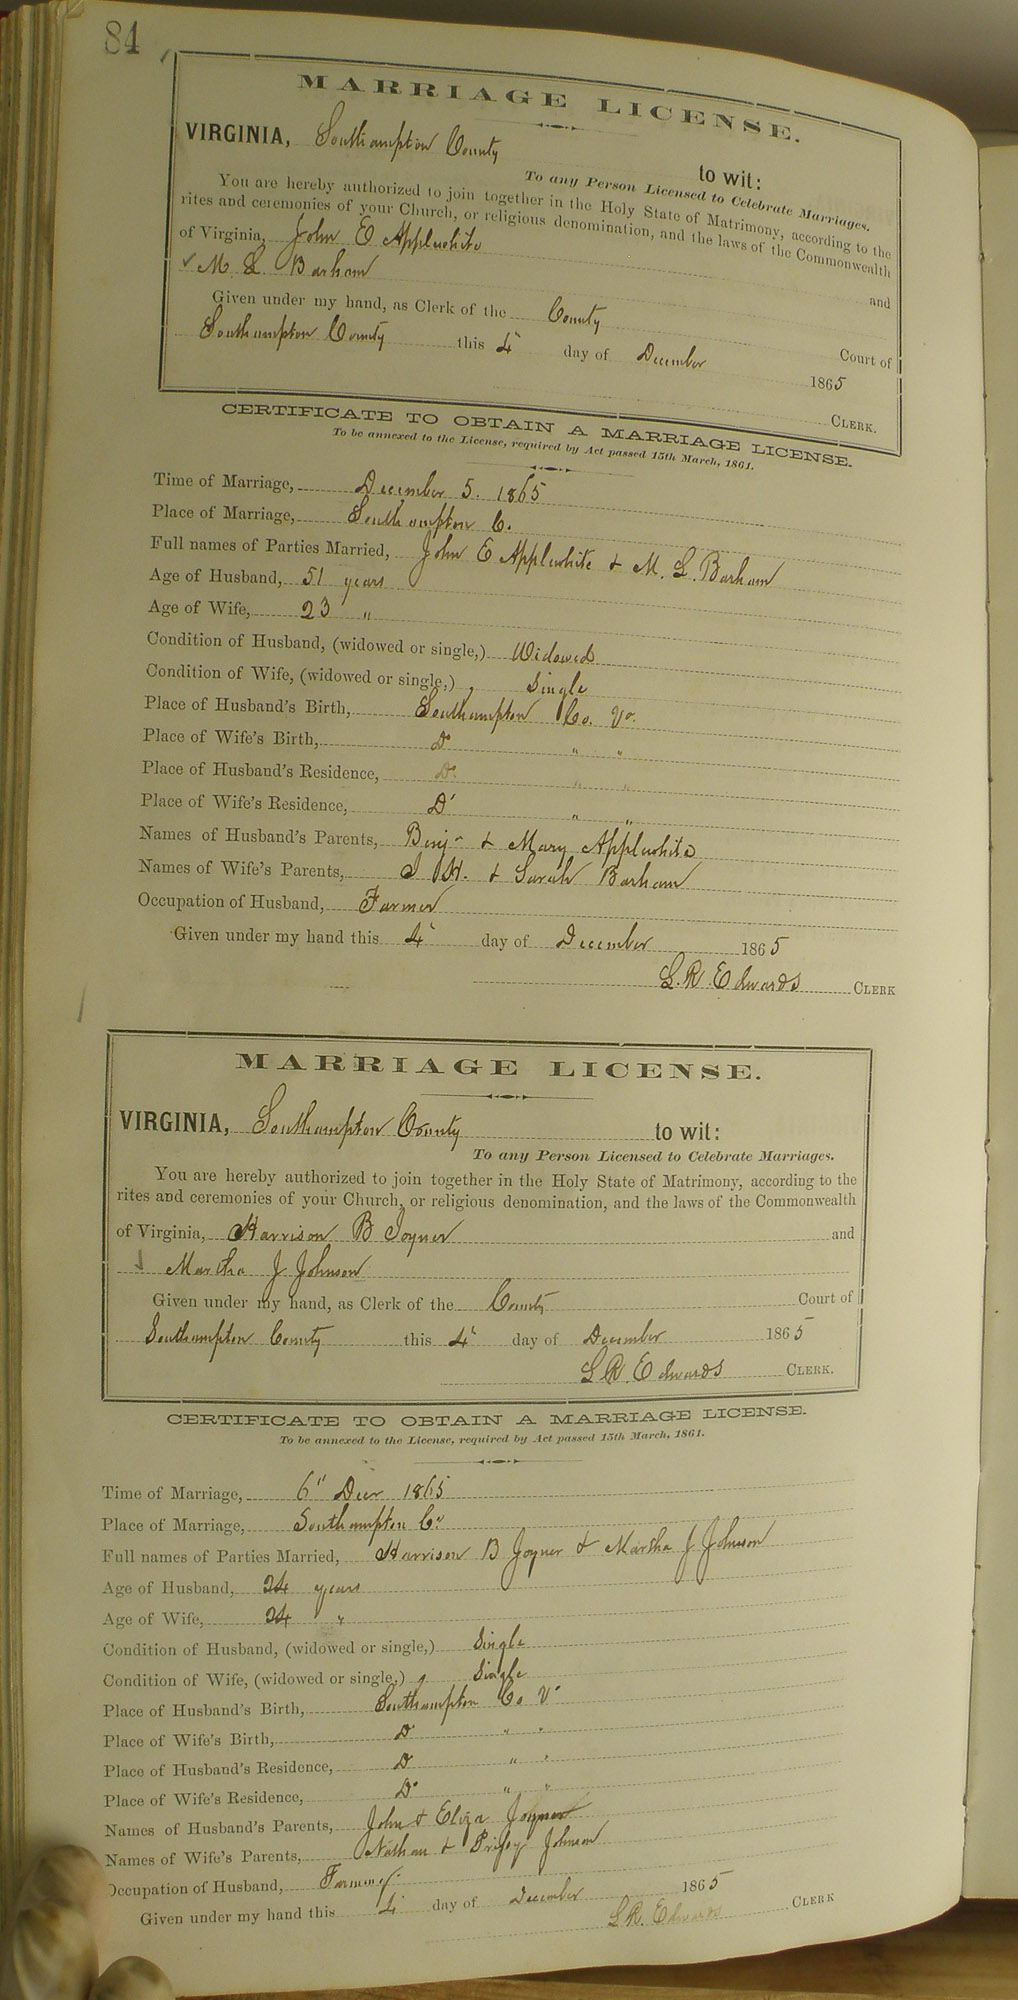 84
MARRIAGE LICENSE.
VIRGINIA, Southampton County to wit:
To any Person Licensed to Celebrate Marriages.
You are hereby authorized to join together in the Holy State of Matrimony, according to the
rites and ceremonies of your Church, or religious denomination, and the laws of the Commonwealth
of Virginia, John E Applewhite and
M. L. Barham
Given under my hand, as Clerk of the County Court of
Southampton County this 4 day of December 1865
CLERK.
CERTIFICATE TO OBTAIN A MARRIAGE LICENSE.
To be annexed to the License, required by Act passed 15th March, 1861.
Time of Marriage, December 5. 1865
Place of Marriage, Southampton C.
Full names of Parties Married, John E Applewhite & M. L. Barham
Age of Husband, 51 years
Age of Wife, 23 "
Condition of Husband, (widowed or single,) Widowed
Condition of Wife, (widowed or single,) Single
Place of Husband's Birth, Southampton Co. Va.
Place of Wife's Birth, Do " "
Place of Husband's Residence, Do " "
Place of Wife's Residence, Do " "
Names of Husband's Parents, Benj & Mary Applewhite
Names of Wife's Parents, J W. & Sarah Barham
Occupation of Husband, Farmer
Given under my hand this 4 day of December 1865
L. R. Edwards CLERK
MARRIAGE LICENSE.
VIRGINIA, Southampton County to wit:
To any Person Licensed to Celebrate Marriages.
You are hereby authorized to join together in the Holy State of Matrimony, according to the
rites and ceremonies of your Church, or religious denomination, and the laws of the Commonwealth
of Virginia, Harrison B Joyner and
Martha J Johnson
Given under my hand, as Clerk of the County Court of
Southampton County this 4 day of December 1865
L R. Edwards CLERK.
CERTIFICATE TO OBTAIN A MARRIAGE LICENSE.
To be annexed to the License, required by Act passed 15th March, 1861.
Time of Marriage, 6" Decr 1865
Place of Marriage, Southampton Co
Full names of Parties Married, Harrison B Joyner & Martha J Johnson
Age of Husband, 24 years
Age of Wife, 24 "
Condition of Husband, (widowed or single,) Single
Condition of Wife, (widowed or single,) Single
Place of Husband's Birth, Southampton Co Va
Place of Wife's Birth, Do " "
Place of Husband's Residence, Do " "
Place of Wife's Residence, Do " "
Names of Husband's Parents, John & Eliza Joyner
Names of Wife's Parents, Nathan & Johnson
Occupation of Husband, Farmer
Given under my hand this 4 day of December 1865
L R. Edwards CLERK